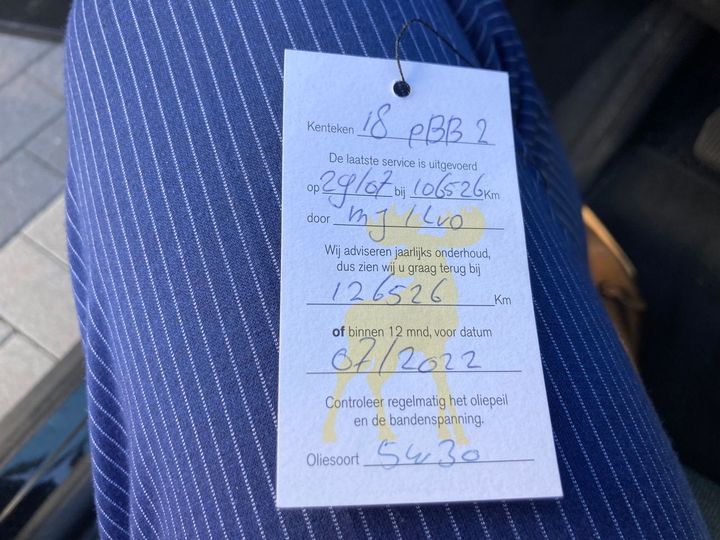 Kenteken 18 PBB 2
De laatste service is uitgevoerd
op 29/07 bij 106526 Km
door
Wij adviseren jaarlijks onderhoud,
dus zien wij u graag terug bij
126526 Km
of binnen 12 mnd, voor datum
07/2022
Controleer regelmatig het oliepeil
en de bandenspanning.
Oliesoort 5w30